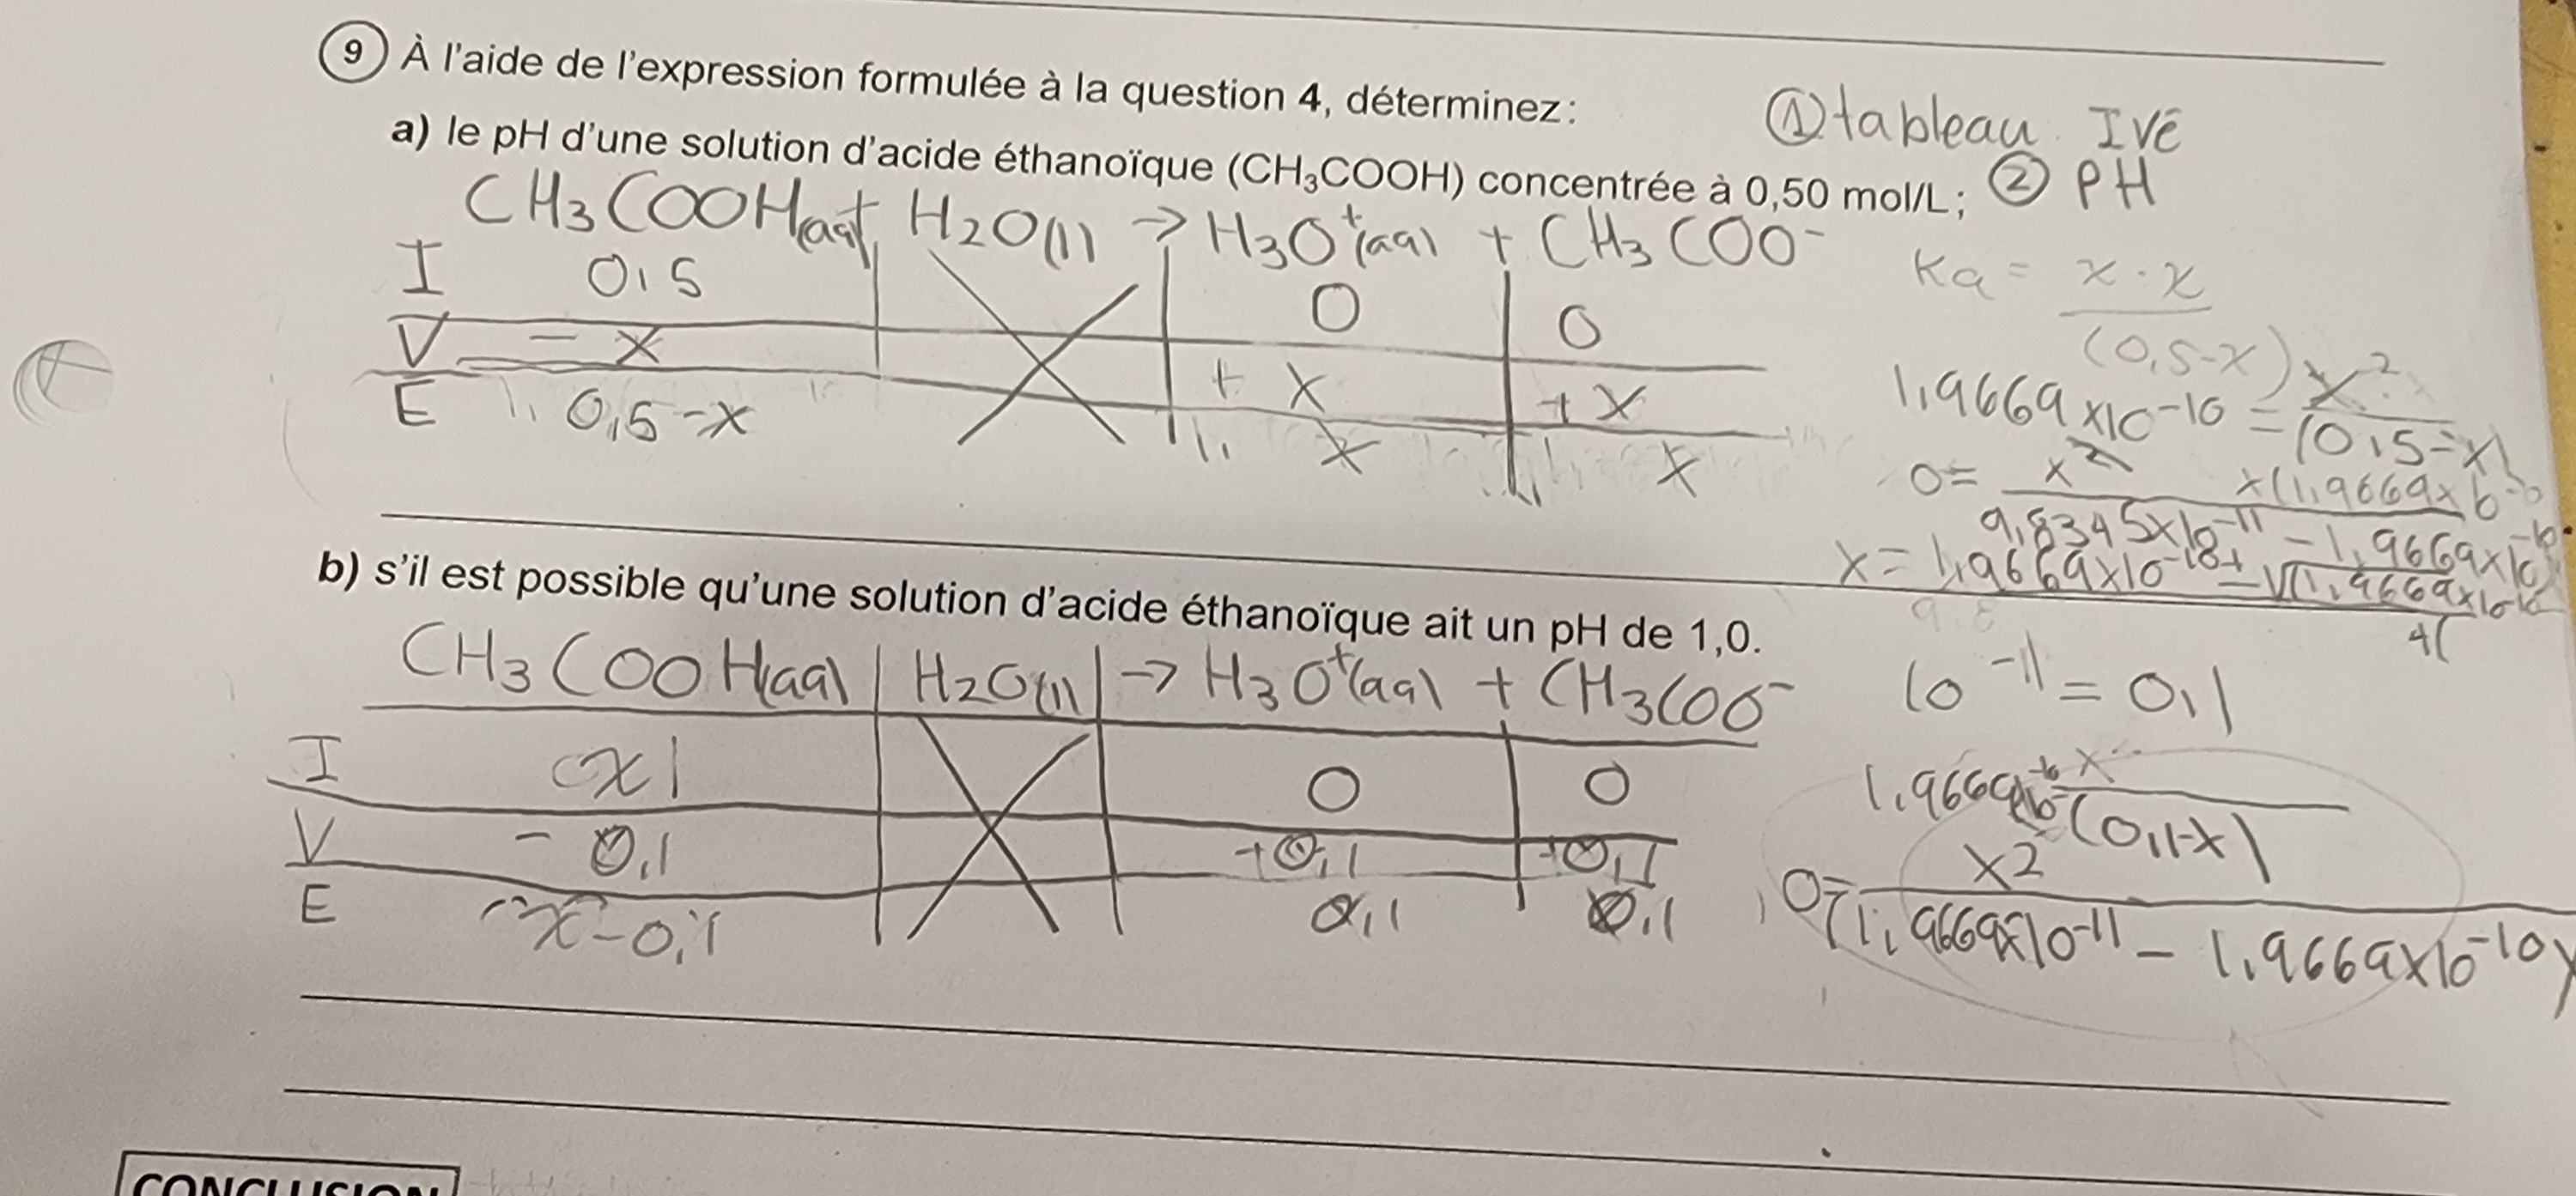 9 À l'aide de l'expression formulée à la question 4, déterminez :
① tableau IVE
a) le pH d'une solution d'acide éthanoïque (CH₃COOH) concentrée à 0,50 mol/L ;
② PH
CH3COOH(aq) + H2O(l) → H3O+(aq) + CH3COO-
I 0,5 0 0
V - x + x + x
E 0,5-x x x
Ka = x · x / (0,5-x)
1,9669 x10-10 = x2 / (0,5-x)
0 = x2 x(1,9669x10
9,8345x10-11 - 1,9669x10-10
x = 1,9669x10-10 ± √(1,9669x10-10
4(
b) s'il est possible qu'une solution d'acide éthanoïque ait un pH de 1,0.
CH3COOH(aq) H2O(l) → H3O+(aq) + CH3COO-
I x 0 0
V - 0,1 +0,1 +0,1
E x-0,1 0,1 0,1
10-1 = 0,1
1,9669x10 x / (0,1-x)
0= x2 / (1,9669x10-11 - 1,9669x10-10)
CONCLUSION